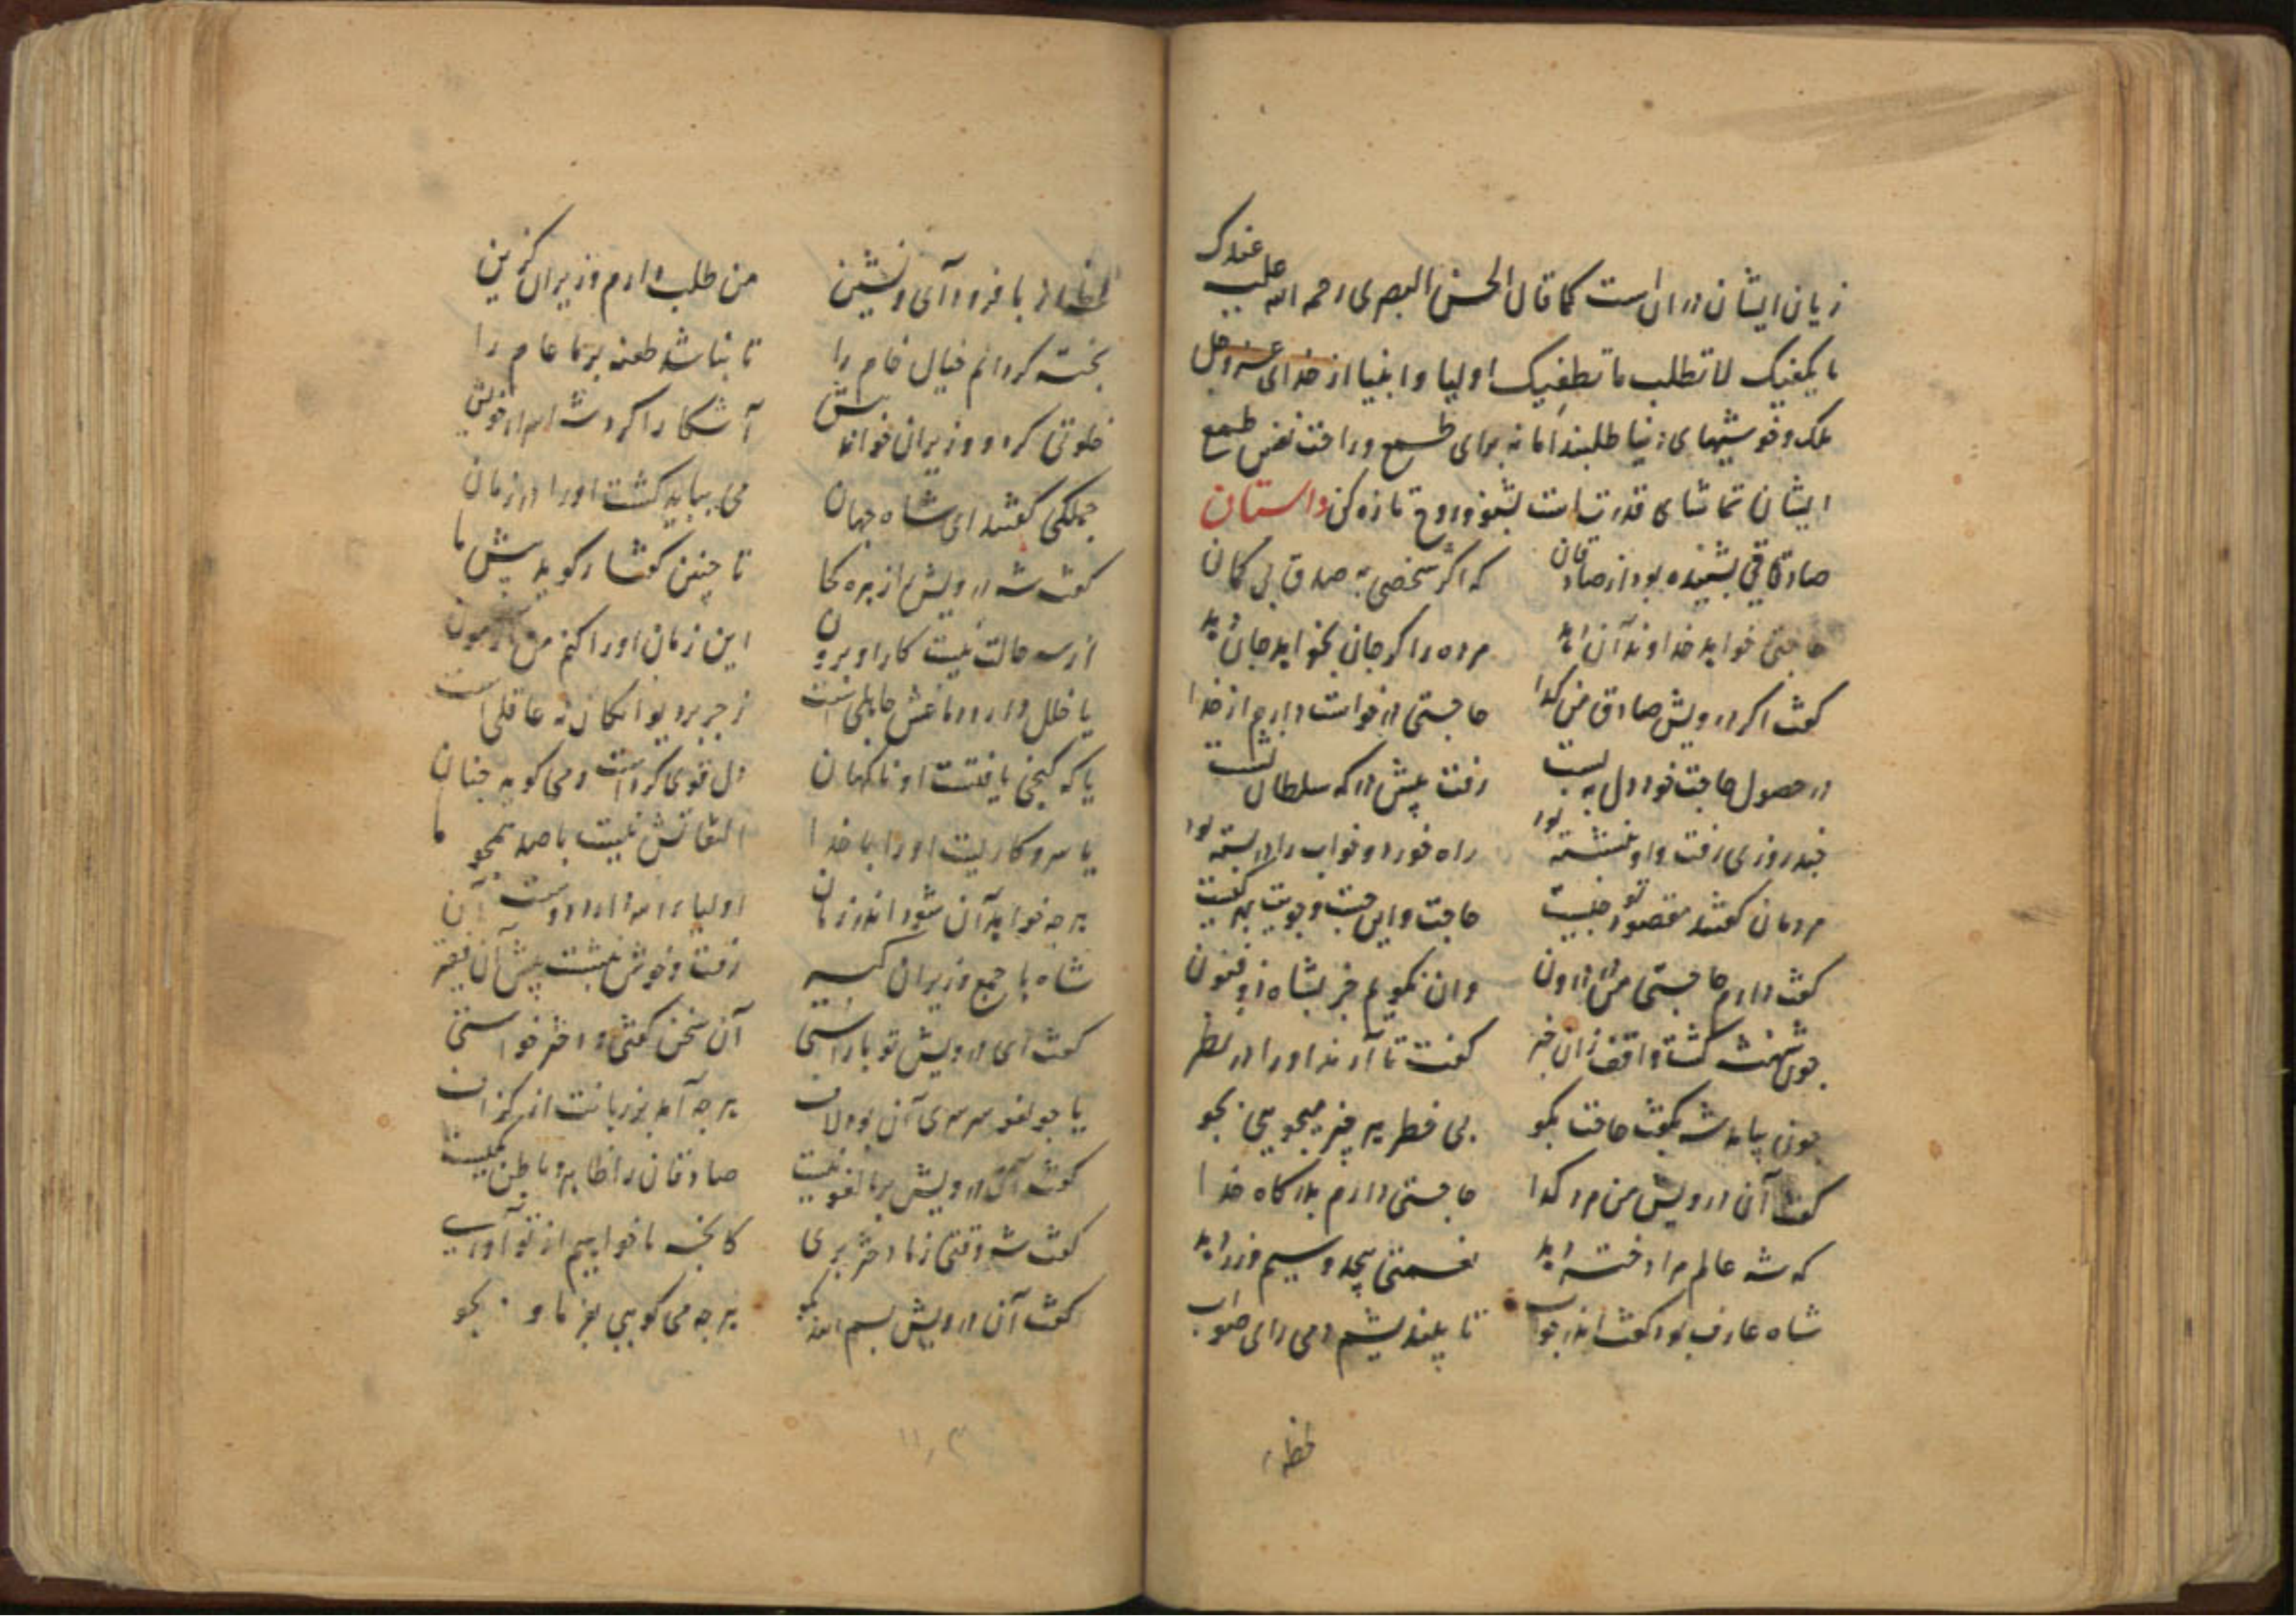 زیان ایشان در آن است کما قال الحسن البصری رحمه الله علیه عندک
ما یکفیک لا تطلب ما تطغیک اولیا و انبیا از خدای عز و جل
ملک و خوشیهای دنیا طلبند اما نه برای طمع و راحت نفس طمع
ایشان تماشای قدرتست بشنو و روح تازه کن داستان
صادقی بشنیده بود از صادقان که اگر شخصی به صدق بی کمان
حاجتی خواهد خداوند آن دهد مرده را کر جان بخواهد جان دهد
کفت اکر درویش صادق من کدا حاجتی درخواست دارم از خدا
در حصول حاجت خود دل ببست رفت پیش درکه سلطان نشست
چند روزی رفت و او بنشسته بود راه خورد و خواب را در بسته بود
مردمان کفتند مقصود تو چیست حاجت و این جست و جویت بهر کیست
کفت دارم حاجتی من در درون وان نکویم جز بشاه ذو فنون
چون شهنشه کشت واقف زان خبر کفت تا آرند او را در نظر
چون بیامد شه بکفت حاجت بکو بی خطر هر چیز میجویی بجو
کفت آن درویش من مرد کدا حاجتی دارم بدرکاه خدا
که شه عالم مرا دختر دهد نعمتی بیحد و سیم و زر دهد
شاه عارف بود کفت اندر جواب تا بیندیشم دمی رای صواب
لحظه
لحظه با فرود آی و نشین من طلب دارم وزیران کزین
پخته کردانم خیال خام را تا نباشد طعنه بر ما عام را
خلوتی کرد و وزیران خواند پیش آشکارا کرد شه اسرار خویش
جملکی کفتند ای شاه جهان می بباید کشت او را در زمان
کفت شه درویش را زهره کجا تا چنین کفتار کوید پیش ما
از سه حالت نیست کار او برون این زمان او را کنم من آزمون
یا خلل دارد دماغش جاهلی است زجر بر دیوانکان نه عاقلی است
یا که کنجی یافتست او ناکهان دل قوی کردست و می کوید چنان
یا سر و کاریست او را با خدا التفاتش نیست با صد همچو ما
هر چه خواهد آن شود اندر زمان اولیاء الله را
شاه با جمع وزیران کبیر رفت و خوش بنشست پیش آن فقیر
کفت ای درویش تو با راستی آن سخن کفتی و دختر خواستی
یا چو لغو سرسری آن بود لاف هر چه آمد بر زبانت از کزاف
کفت آن درویش بر ما لغو نیست صادقان را ظاهر و باطن یکیست
کفت شه وقتی ز ما دختر بری کانچه ما خواهیم از تو آوری
کفت آن درویش بسم الله بکو هر چه می کویی بفرما و بجو